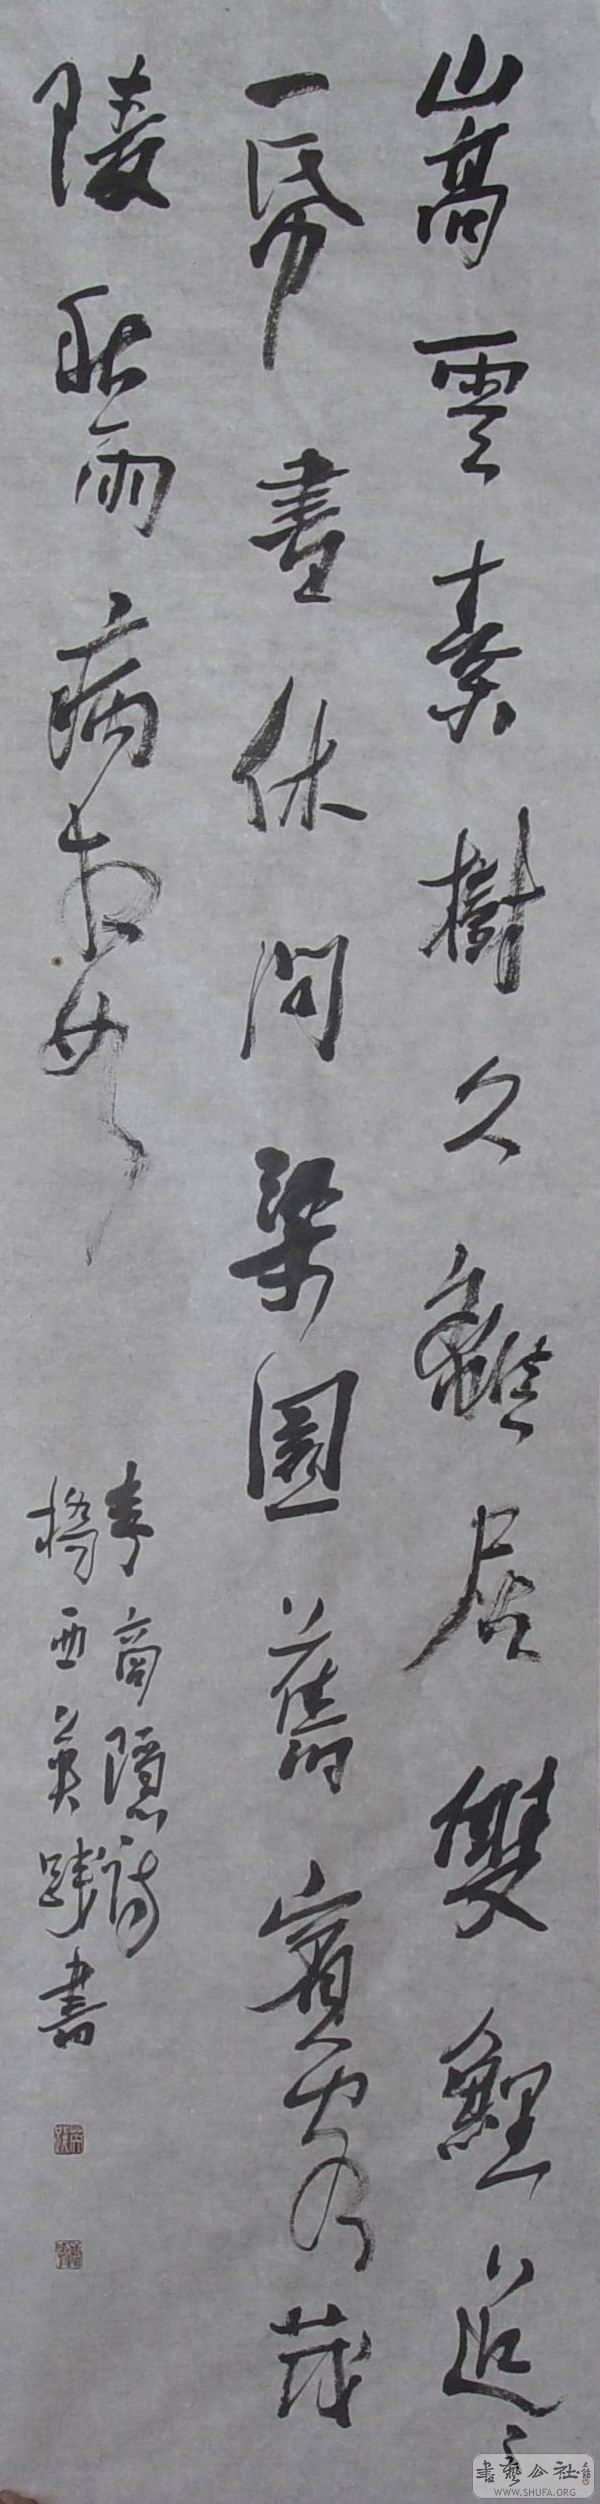 嵩雲秦樹久離居雙鯉迢迢
一帋書休問梁園舊賓客茂
陵秋雨病相如
李商隱詩
英 書
書藝公社
WWW.SHUFA.ORG